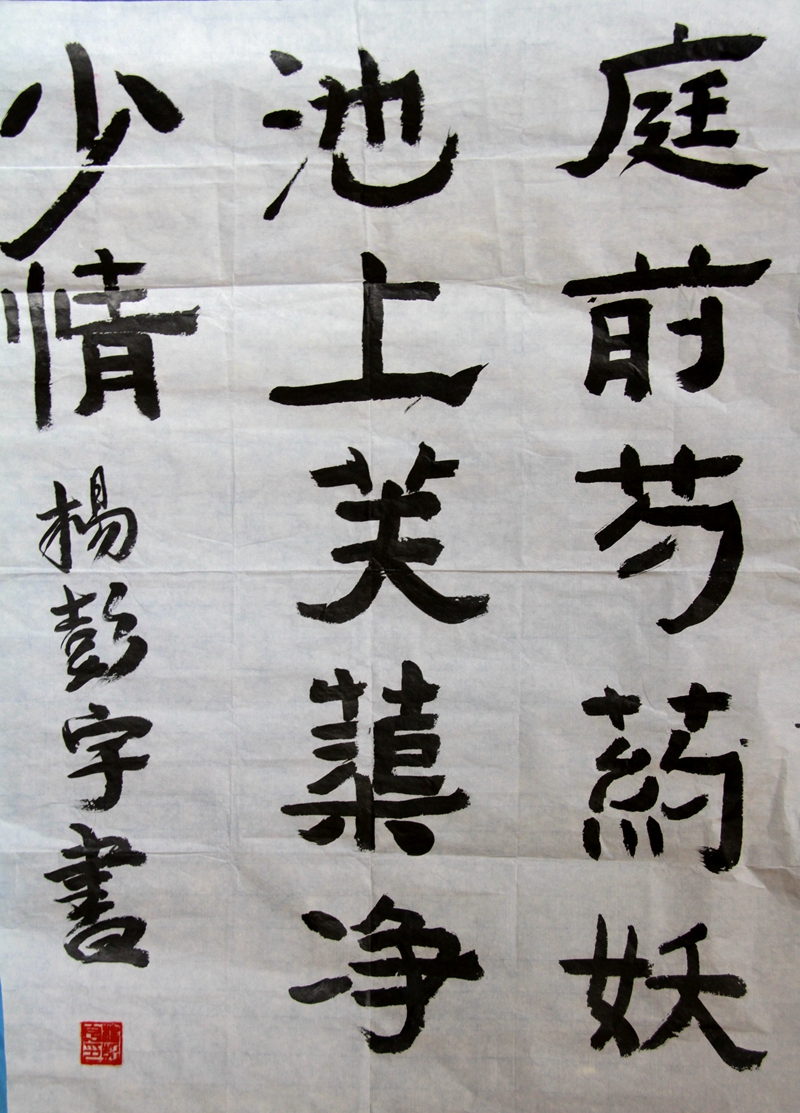 庭前芍葯妖
池上芙蕖净
少情
楊彭字書